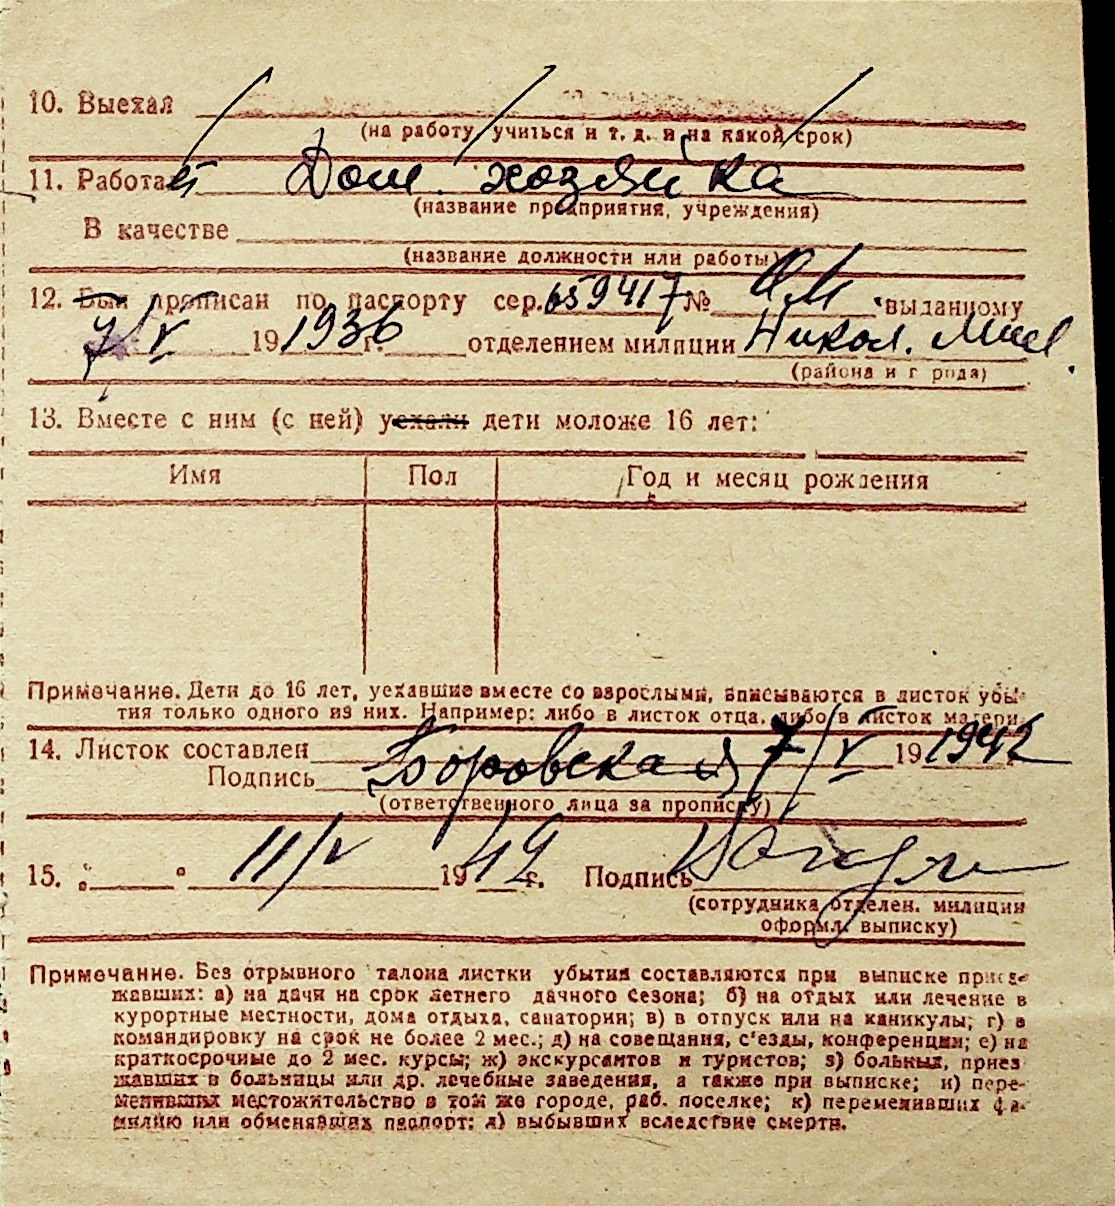 10. Выехал
(на работу, учиться и т. д. и на какой срок)
11. Работает Дом. хозяйка
(название предприятия, учреждения)
В качестве
(название должности или работы)
12. Был прописан по паспорту сер. 659417 № ОМ выданному
7/V 19 1936 г. отделением милиции Никол. Мил.
(района и города)
13. Вместе с ним (с ней) уехали дети моложе 16 лет:
Имя Пол Год и месяц рождения
Примечание. Дети до 16 лет, уехавшие вместе со взрослыми, вписываются в листок убы-
тия только одного из них. Например: либо в листок отца, либо в листок матери.
14. Листок составлен 7/V 19 1942
Подпись Боровская
(ответственного лица за прописку)
15. " " 11/V 1942 г. Подпись
(сотрудника отделен. милиции
оформл. выписку)
Примечание. Без отрывного талона листки убытия составляются при выписке приез-
жавших: а) на дачи на срок летнего дачного сезона; б) на отдых или лечение в
курортные местности, дома отдыха, санатории; в) в отпуск или на каникулы; г) в
командировку на срок не более 2 мес.; д) на совещания, с'езды, конференции; е) на
краткосрочные до 2 мес. курсы; ж) экскурсантов и туристов; з) больных, приез
жавших в больницы или др. лечебные заведения, а также при выписке; и) пере-
менивших местожительство в том же городе, раб. поселке; к) переменивших фа-
милию или обменявших паспорт; л) выбывших вследствие смерти.